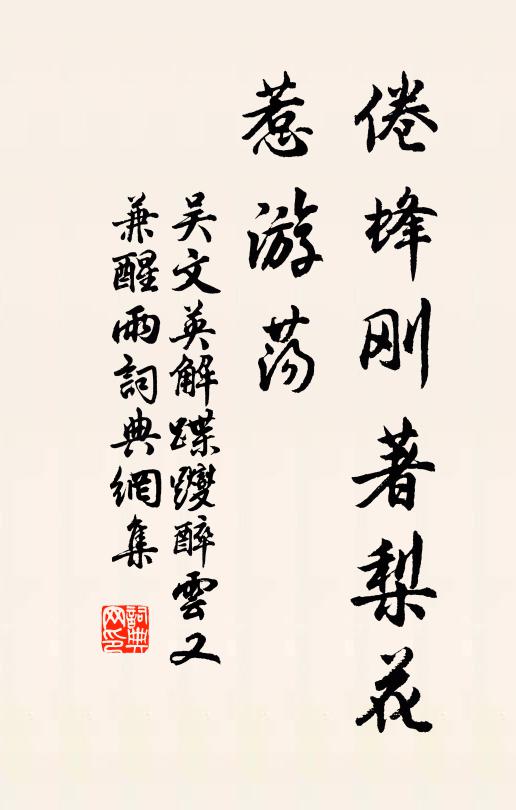 倦蜂刚著梨花
惹游荡
吴文英解蹀躞醉雲又
兼醒雨詞典網集
詞典
网印